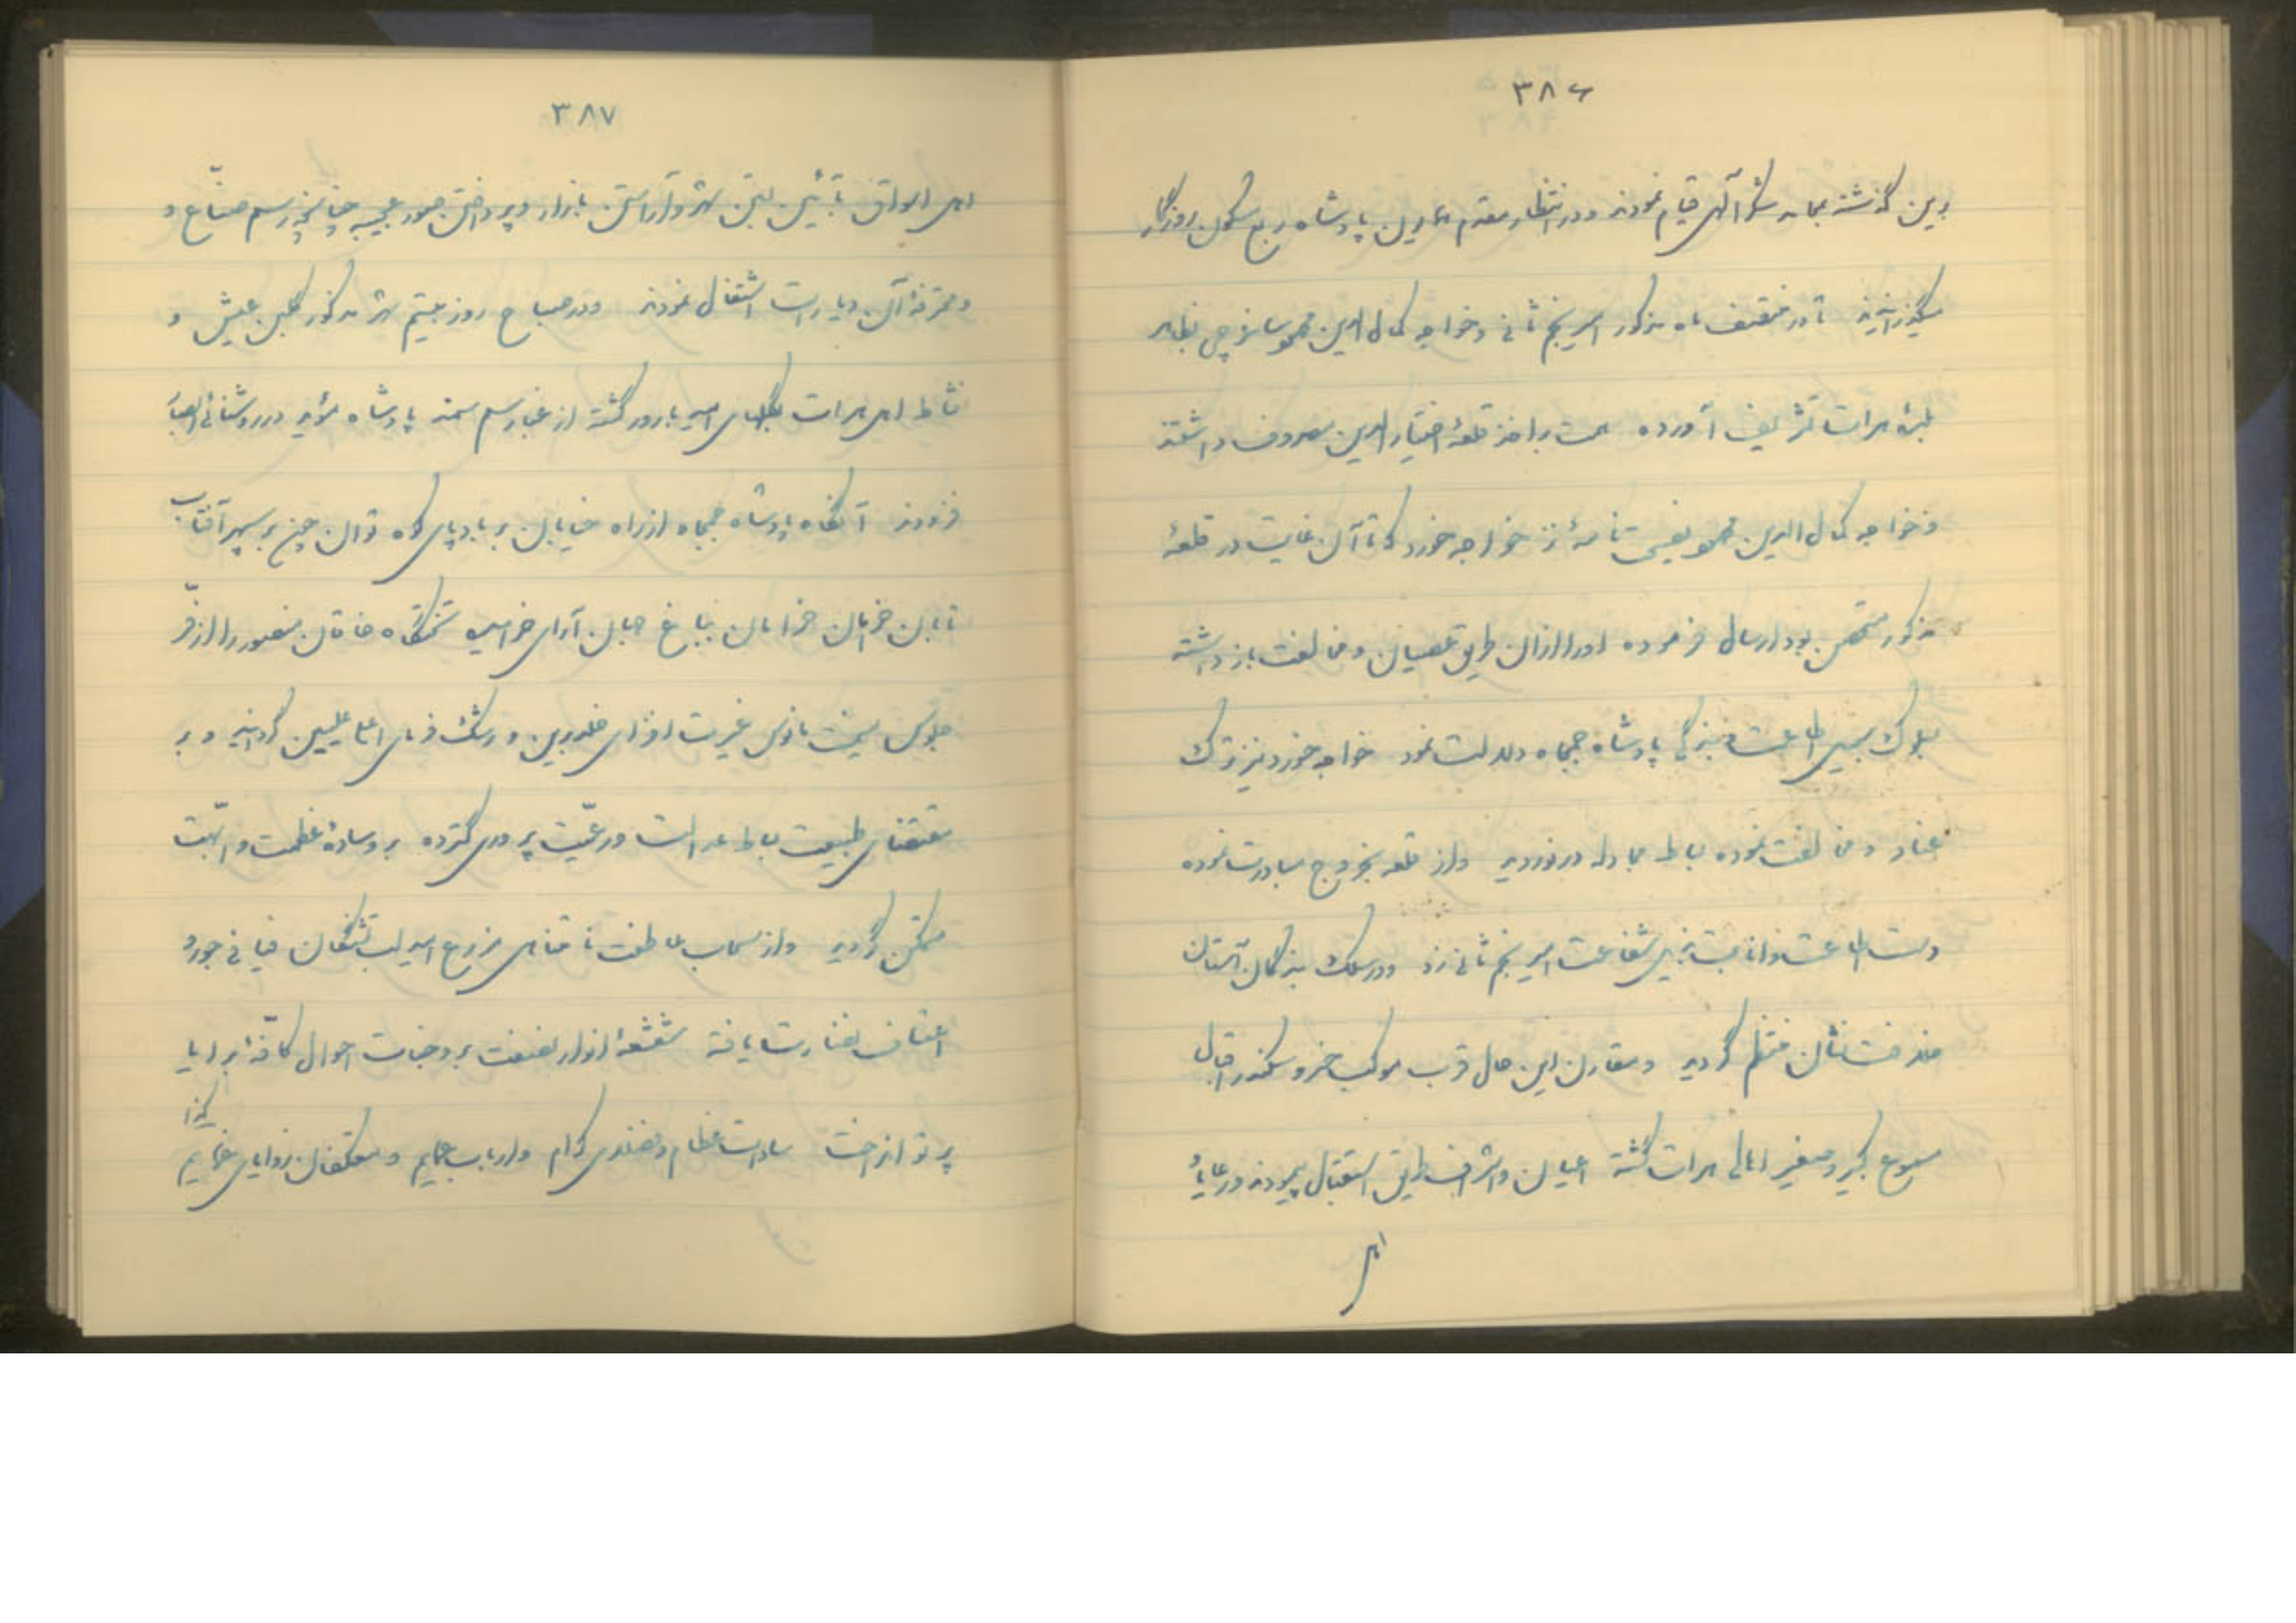 ۳۸۶
برین گذشته بمحامد شکر آلهی قیام نمودند و در انتظار مقدم همایون پادشاه ربع مسکون روزگار
میگذرانیدند تا در منتصف ماه مذکور امیر نجم ثانی و خواجه کمال الدین محمود ساغرچی بظاهر
بلدهٔ هرات تشریف آورده همت بر اخذ قلعهٔ اختیار الدین مصروف داشتند
و خواجه کمال الدین محمود نصیحت نامهٔ نزد خواجه خورد که تا آن غایت در قلعهٔ
مذکور متحصن بود ارسال فرموده او را از آن طریق عصیان و مخالفت باز داشته
بسلوک سبیل اطاعت و بندگی پادشاه جمجاه دلالت نمود خواجه خورد نیز ترک
عناد و مخالفت نموده بساط مجادله در نوردید و از قلعه بخروج مبادرت نموده
دست اطاعت و انابت بذیل شفاعت امیر نجم ثانی زد و در سلک بندگان آستان
خلافت نشان منتظم گردید و مقارن این حال قرب موکب خسرو سکندر اقبال
مسموع کبیر و صغیر اهالی هرات گشته اعیان و اشراف طریق استقبال پیمودند و رعایا و
اهل
۳۸۷
اهل اسواق بآئین بستن شهر و آراستن بازار و پرداختن صور عجیبه چنانچه رسم صنّاع و
و محترفهٔ آن دیار است اشتغال نمودند و در صباح روز بیستم شهر مذکور گلبن عیش و
نشاط اهل هرات بگلهای امید بارور گشته از غبار سم سمند پادشاه مؤید در روشنائی ابصار
فزودند آنگاه پادشاه جمجاه از راه خیابان بر بادپای کوه توان چون بر سپهر آفتاب
تابان خرامان خرامان بباغ جهان آرای خرامیده تختگاه خاقان منصور را از فرّ
جلوس میمنت مانوس غیرت افزای خلد برین و رشک فرمای اعلی علیین گردانید و بر
مقتضای طبیعت بساط عدالت و رعیّت پروری گسترده بر وسادهٔ عظمت و ابّهت
متمکن گردید و از سحاب عاطفت نامتناهی مزرع امید لب تشنگان فیافی جور و
اعتساف نضارت یافته شعشعهٔ انوار نصفت بر وجنات احوال کافّه برایا
پرتو انداخت سادات عظام و فضلای کرام و ارباب عمایم و معتکفان زوایای غمایم
کذا